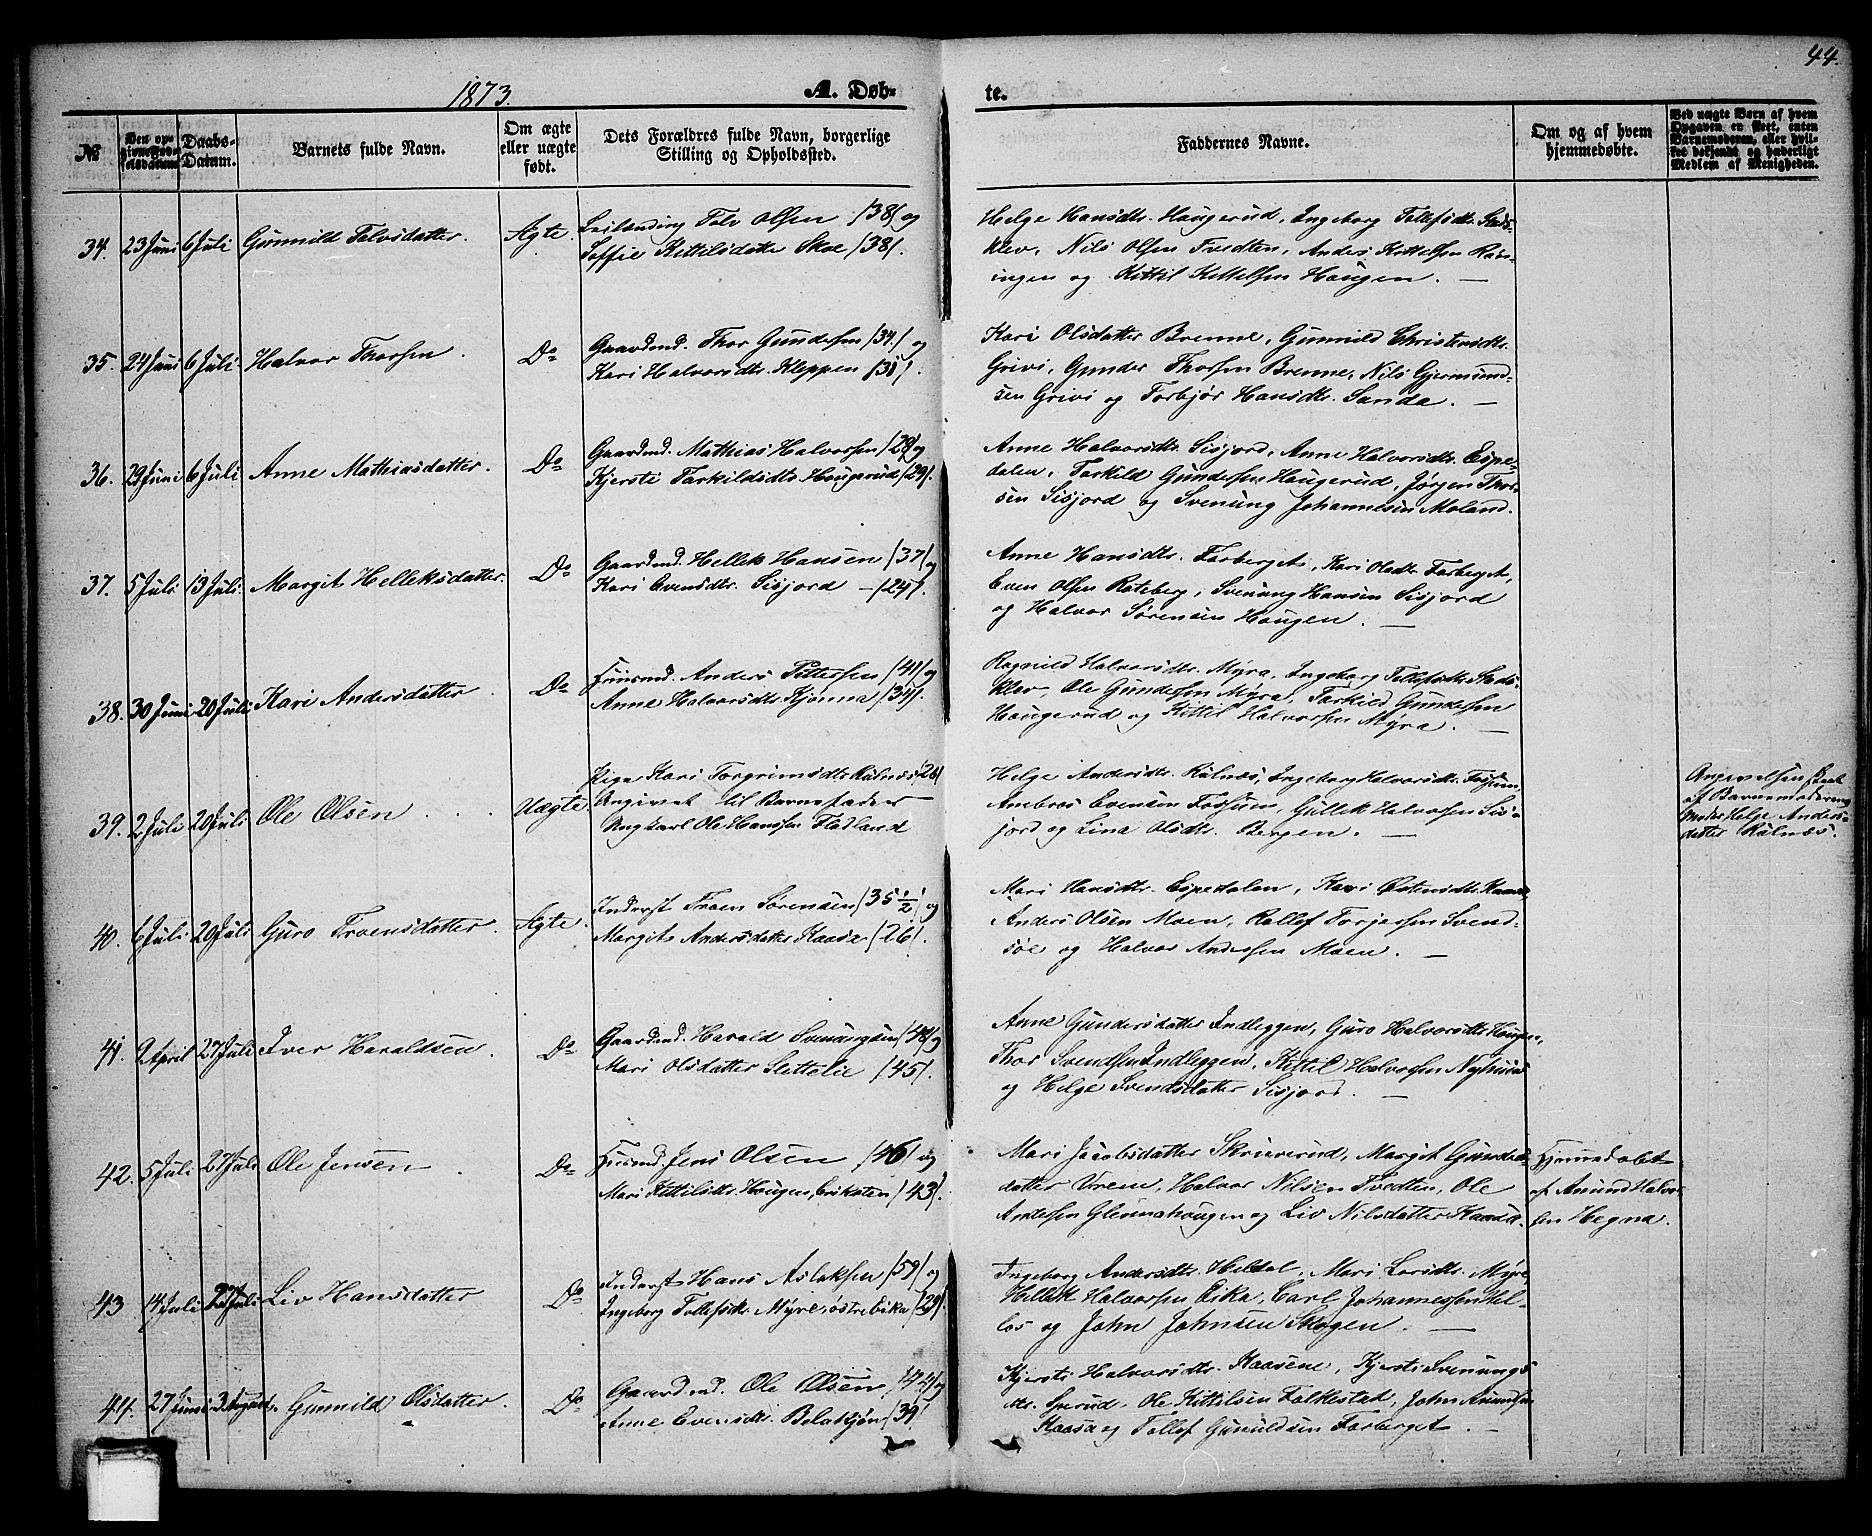 44.
1873.
A. Døb-
te.
№
Den op-
Daabs-
Datum.
Barnets fulde Navn.
Om ægte
eller uægte
født.
Dets Forældres fulde Navn, borgerlige
Stilling og Opholdssted.
Faddernes Navne.
Om og af hvem
hjemmedøbte.
Ved uægte Børn af hvem
Opgaven er skeet, enten
Barnemoderen, eller hvil-
ket bekjendt og hæderligt
Medlem af Menigheden.
34. 23 Juni 6 Juli Gunnild Tolvsdatter. Ægte.
Leilending Tolv Olsen /38/ og
Soffie Kittilsdatter Skoe /38/.
Helge Hansdtr. Haugerud, Ingeborg Tollefsdtr. Stads-
klev, Nils Olsen Tvedten, Anders Kittelsen Røn-
ingen og Kittil Kittelsen Haugen. —
35. 24 Juni 6 Juli. Halvor Thorsen. Do
Gaardmd. Thor Gundersen /34/ og
Kari Halvorsdtr. Kleppen /31/.
Kari Olsdatter Brenne, Gunnild Christensdtr.
Grivi, Gunder Thorsen Brenne, Nils Gjermund-
sen Grivi og Torbjør Hansdtr. Sanda. —
36. 29 Juni 6 Juli Anne Mathiasdatter. Do
Gaardmd. Mathias Halvorsen /28/ og
Kjersti Tarkildsdtr. Haugerud /29/.
Anne Halvorsdtr. Sisjord, Anne Halvorsdtr. Espe-
dalen, Tarkild Gundersen Haugerud, Jørgen Thor-
sen Sisjord og Svenung Johannesen Moland.
37. 5 Juli 13 Juli. Margit Helleksdatter. Do
Gaardmd. Hellek Hansen /37/ og
Kari Evensdtr. Sisjord — /24/.
Anne Hansdtr. Farberget, Kari Olsdtr. Farberget,
Even Olsen Roteberg, Svenung Hansen Sisjord
og Halvor Sørensen Haugen. —
38. 30 Juni 20 Juli Kari Andersdatter. Do
Huusmd. Anders Pettersen /41/ og
Anne Halvorsdtr. Kjønna /34/.
Ragnild Halvorsdtr. Myra, Ingeborg Tollefsdtr. Stads-
klev, Ole Gundersen Myra, Tarkild Gundersen
Haugerud og Kittil Halvorsen Myra. —
39. 2 Juli 20 Juli Ole Olsen . . . Uægte
Pige Kari Torgrimsdtr. Rålnæs /26/
Angivet til Barnefader
Ungkarl Ole Hansen Fladland
Helge Andersdtr. Rålnæs, Ingeborg Halvorsdtr. Fossum,
Ambros Evensen Fossum, Gullek Halvorsen Sis-
jord og Lina Olsdtr. Bergen. —
Angivelsen skeet
af Barnemoderens
Moder Helge Anders-
datter Rålnæs.
40. 6 Juli 20 Juli Guro Troensdatter. Ægte.
Inderst Troen Sørensen /35 ½/ og
Margit Andersdatter Kaasa /26/.
Mari Hansdtr. Espedalen, Kari Østensdtr. Kaasa
Anders Olsen Moen, Rollef Torjersen Svend-
søe og Halvor Andersen Moen. —
41. 9 April 27 Juli Iver Haraldsen. Do
Gaardmd. Harald Svenungsen /48/ og
Mari Olsdatter Slettelie /45/.
Anne Gundersdatter Indleggen, Guro Halvorsdtr. Haugen,
Thor Svendsen Indleggen, Kittil Halvorsen Nyhuus
og Helge Svendsdatter Sisjord. —
42. 5 Juli 27 Juli Ole Jensen . Do
Huusmd. Jens Olsen /46/ og
Mari Kittilsdtr. Haugen, Eriksten /43/.
Mari Jacobsdatter Skrieverud, Margit Gunders-
datter Vreim, Halvor Nilsen Tvedten, Ole
Andersen Glennahaugen og Liv Nilsdatter Kaasa.
Hjemmedøbt
af Amund Halvor-
sen Hegna.
43 14 Juli 27 Juli Liv Hansdatter Do
Inderst Hans Aslaksen /59/ og
Ingeborg Tollefsdtr. Myre, østre Eika /29/.
Ingeborg Andersdtr. Heldal, Mari Larsdtr. Myre
Hellek Halvorsen Eika, Carl Johannessen Hel-
los og John Johnsen Skogen. —
44. 27 Juni 3 August. Gunnild Olsdatter. Do
Gaardmd. Ole Olsen /42/ og
Anne Evensdtr. Bolaskjøn /39/
Kjersti Halvorsdtr. Kaasene, Kjersti Svenungs
dtr. Sperud, Ole Kittilsen Folkestad, John Amundsen
Kaasa og Tollef Gunuldsen Farberget. —